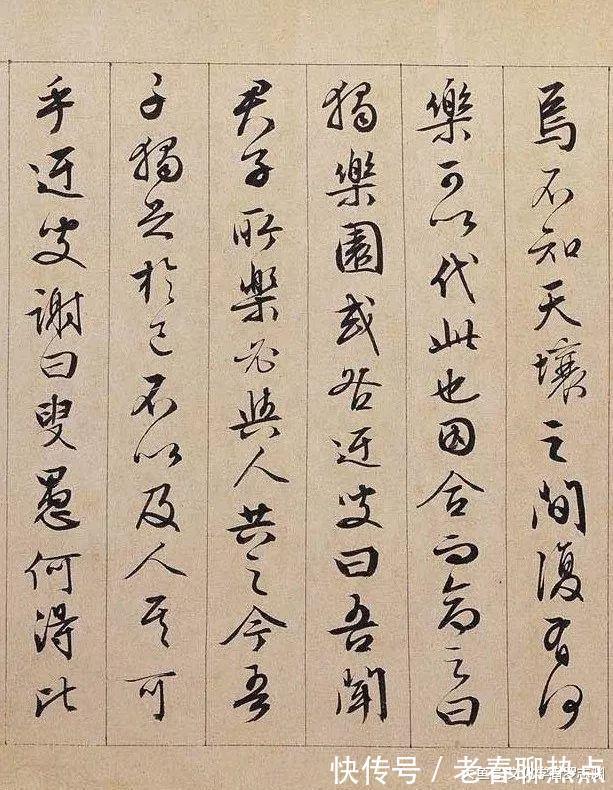 焉不知天壤之間復有何
樂可以代此也因合而命之曰
獨樂園或咎迂叟曰吾聞
君子所樂必與人共之今吾
子獨足於己不以及人其可
乎迂叟謝曰叟愚何得比
快传号／老春聊热点